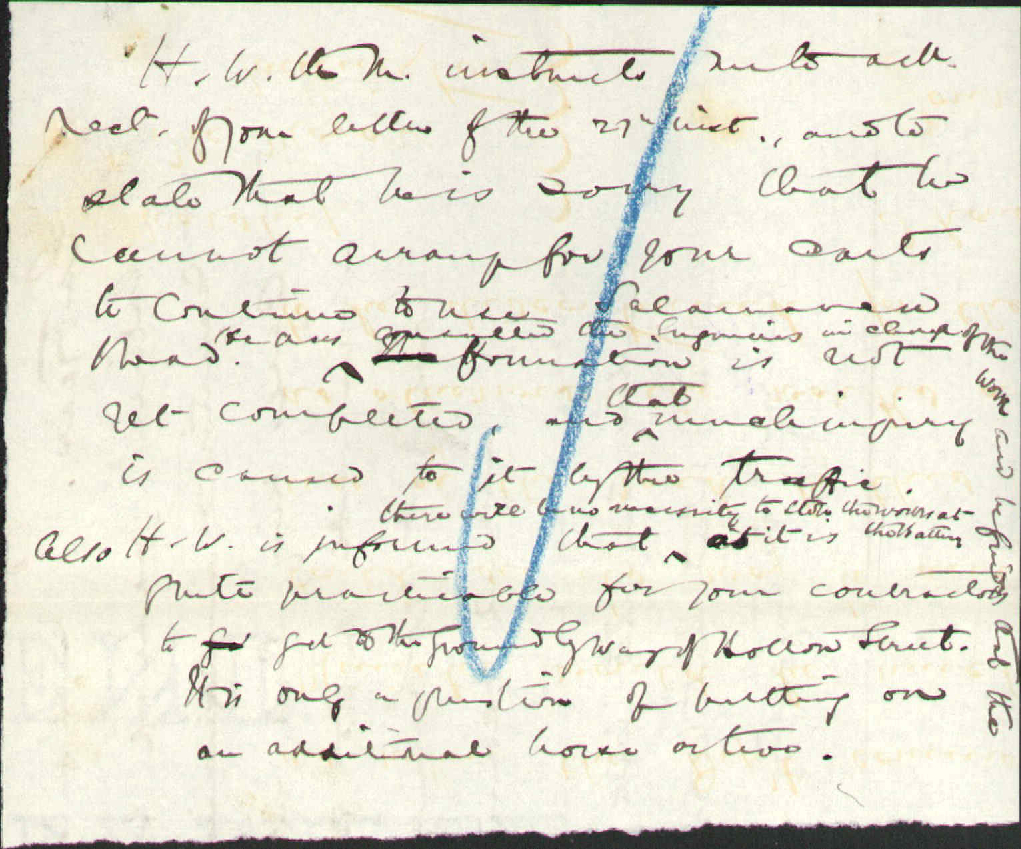 H. W. the M. instructs me to ack.
rect. of your letter of the 27th inst., and to
state that he is sorry that he
cannot arrange for your carts
to continue to use Salamanca
Road.
He has consulted the Engineers in charge of the
work and he finds that the
formation is not
yet completed and that much injury
is caused to it by the traffic.
there will be no necessity to close the works at
the battery
also H. W. is informed that as it is
quite practicable for your contractors
to get to the ground by way of Hollow Street.
It is only a question of putting on
an additional horse or two.